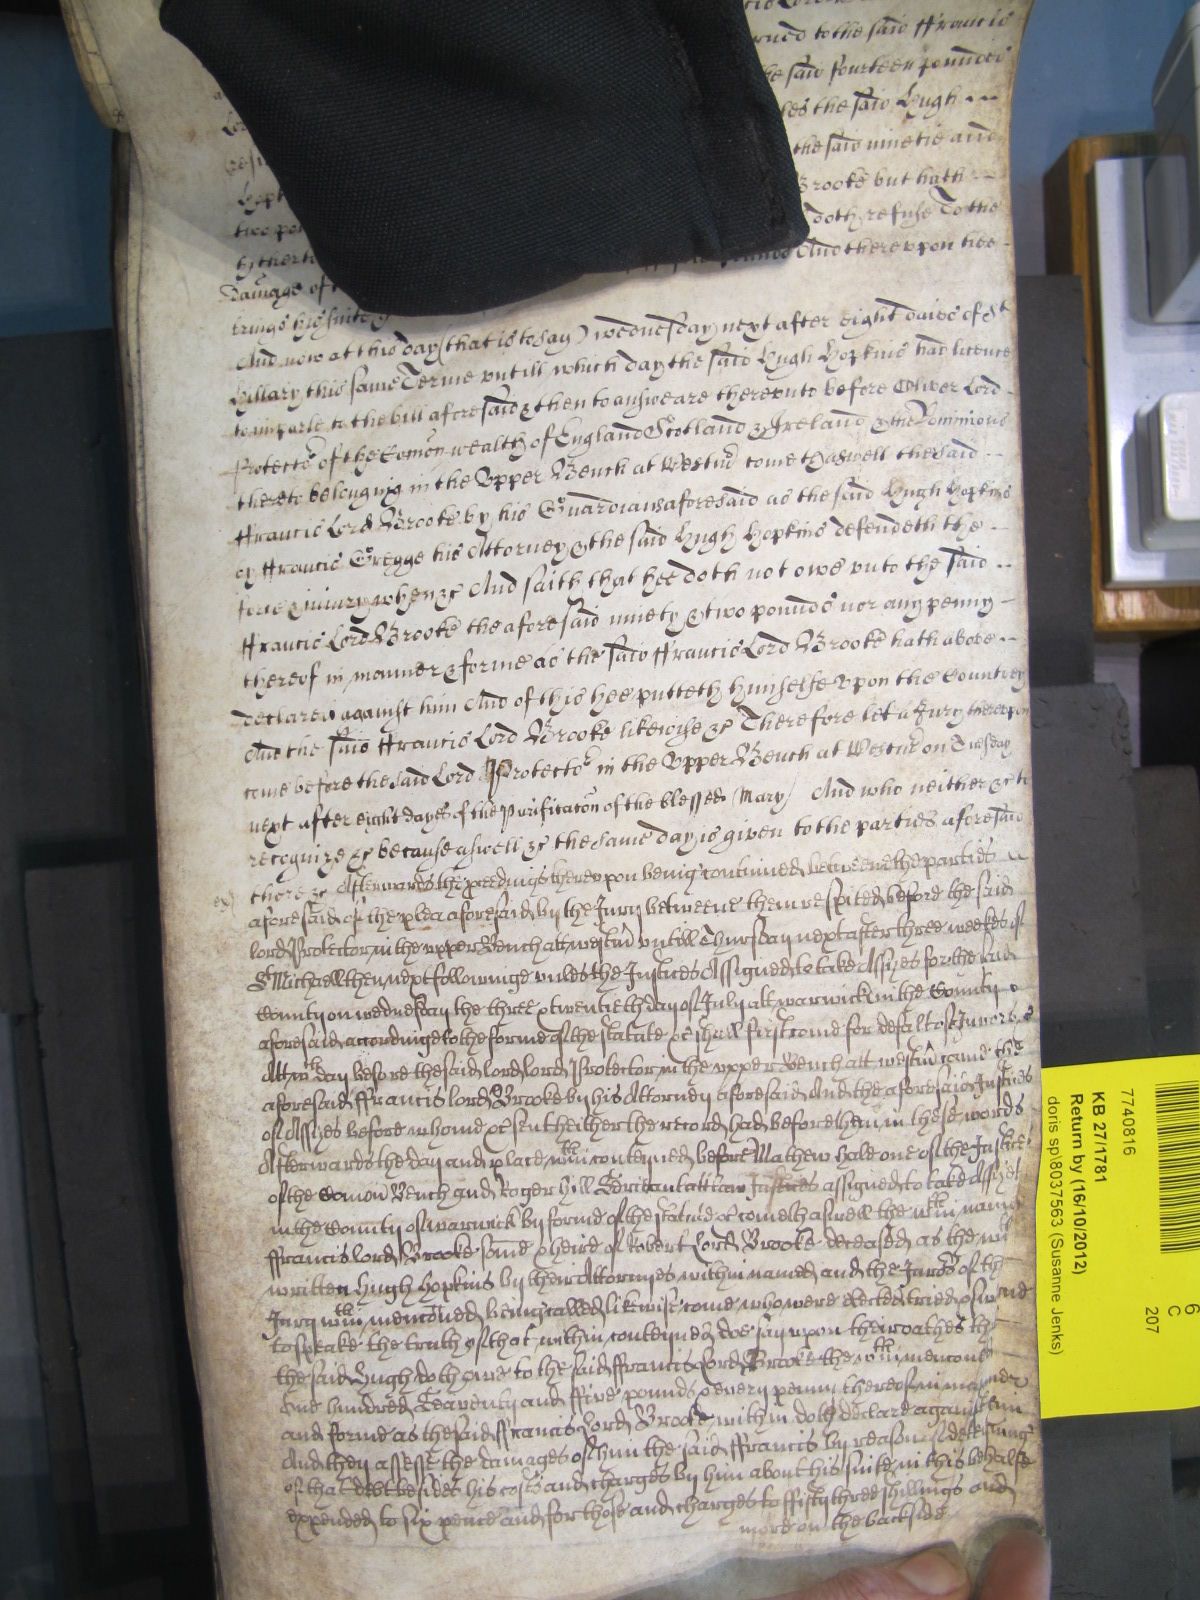 rned to the said ffrancis
he said fourteen pounds
les the said Hugh
the said ninetie and
Brooke but hath
two po doth refuse To the
hitherto pounds And thereupon hee
Damage of
brings his suite &
And now at this day (that is to say) wednesday next after eight daies of St
Hillary this same Terme untill which day the said Hugh Hopkins had licence
to imparle to the bill aforesaid & then to answeare thereunto before Oliver Lord
Protector of the Comon wealth of England Scotland & Ireland & the Dominions
thereto belonging in the Upper Bench at Westmr come th aswell the said
ffrancis Lord Brooke by his Guardian aforesaid as the said Hugh Hopkins
by ffrancis Gregge his Attorney & the said Hugh Hopkins defendeth the
force & iniury when &c And saith that hee doth not owe unto the said
ffrancis Lord Brooke the aforesaid ninety & two pounds nor any penny
thereof in manner & forme as the said ffrancis Lord Brooke hath above
declared against him And of this hee putteth himselfe upon the Countrey
And the said ffrancis Lord Brooke likewise &c Therefore let a Jury thereupon
come before the said Lord Protector in the Upper Bench at Westmr on Tuesday
next after eight dayes of the Purificacon of the blessed Mary And who neither &c to
recognize &c because aswell &c the same day is given to the parties aforesaid
there &c Afterwards the pceedings thereupon being continued betweene the parties
aforesaid of the plea aforesaid by the Jury betweene them respited before the said
lord Protector in the upper Bench att westmr untill Thursday next after three weekes of
St Michaell then next followinge unles the Justices Assigned to take Assizes for the said
County on wednesday the three & twentieth day of July att warwick in the County
aforesaid accordinge to the forme of the statute &c shall first come for default of Jurors &c
Att wch day before the said lord lord Protector in the upper Bench att westmr come the
aforesaid ffrancis lord Brooke by his Attorney aforesaid And the aforesaid Justices
of Assizes before whome &c sent hither the record had before them in these words
Afterwards the day and place wthin conteyned before Mathew hale one of the Justices
of the Comon Bench and Roger Hill Justices assigned to take Assizes
in the County of warwick by forme of the statute &c cometh aswell the wthin named
ffrancis lord Brooke sonne & heire of Robert Lord Brooke deceased as the wthin
written Hugh Hopkins by their Attornies within named and the Jurors of the
Jury wthin menconed being called likewise come who were elected tried & sworne
to speake the truth of that within conteyned doe say upon their oathes th
the said Hugh doth owe to the said ffrancis Lord Brooke the wthin mencond
One hundred Seaventy and ffive pounds & every penny thereof in manner
and forme as the said ffrancis Lord Brooke within doth declare against him
And they assesse the damages of him the said ffrancis by reason of deteyning
of that debt besides his costs and charges by him about his suite in this behalfe
expended to six pence and for those and charges to ffifty three shillings and
more on the backside
7740816
KB 27/1781
Return by (16/10/2012)
doris sp\8037563 (Susanne Jenks)
6
C
207